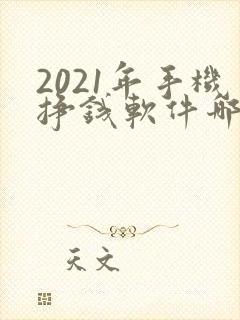 2021年手機
掙錢軟件哪
天文